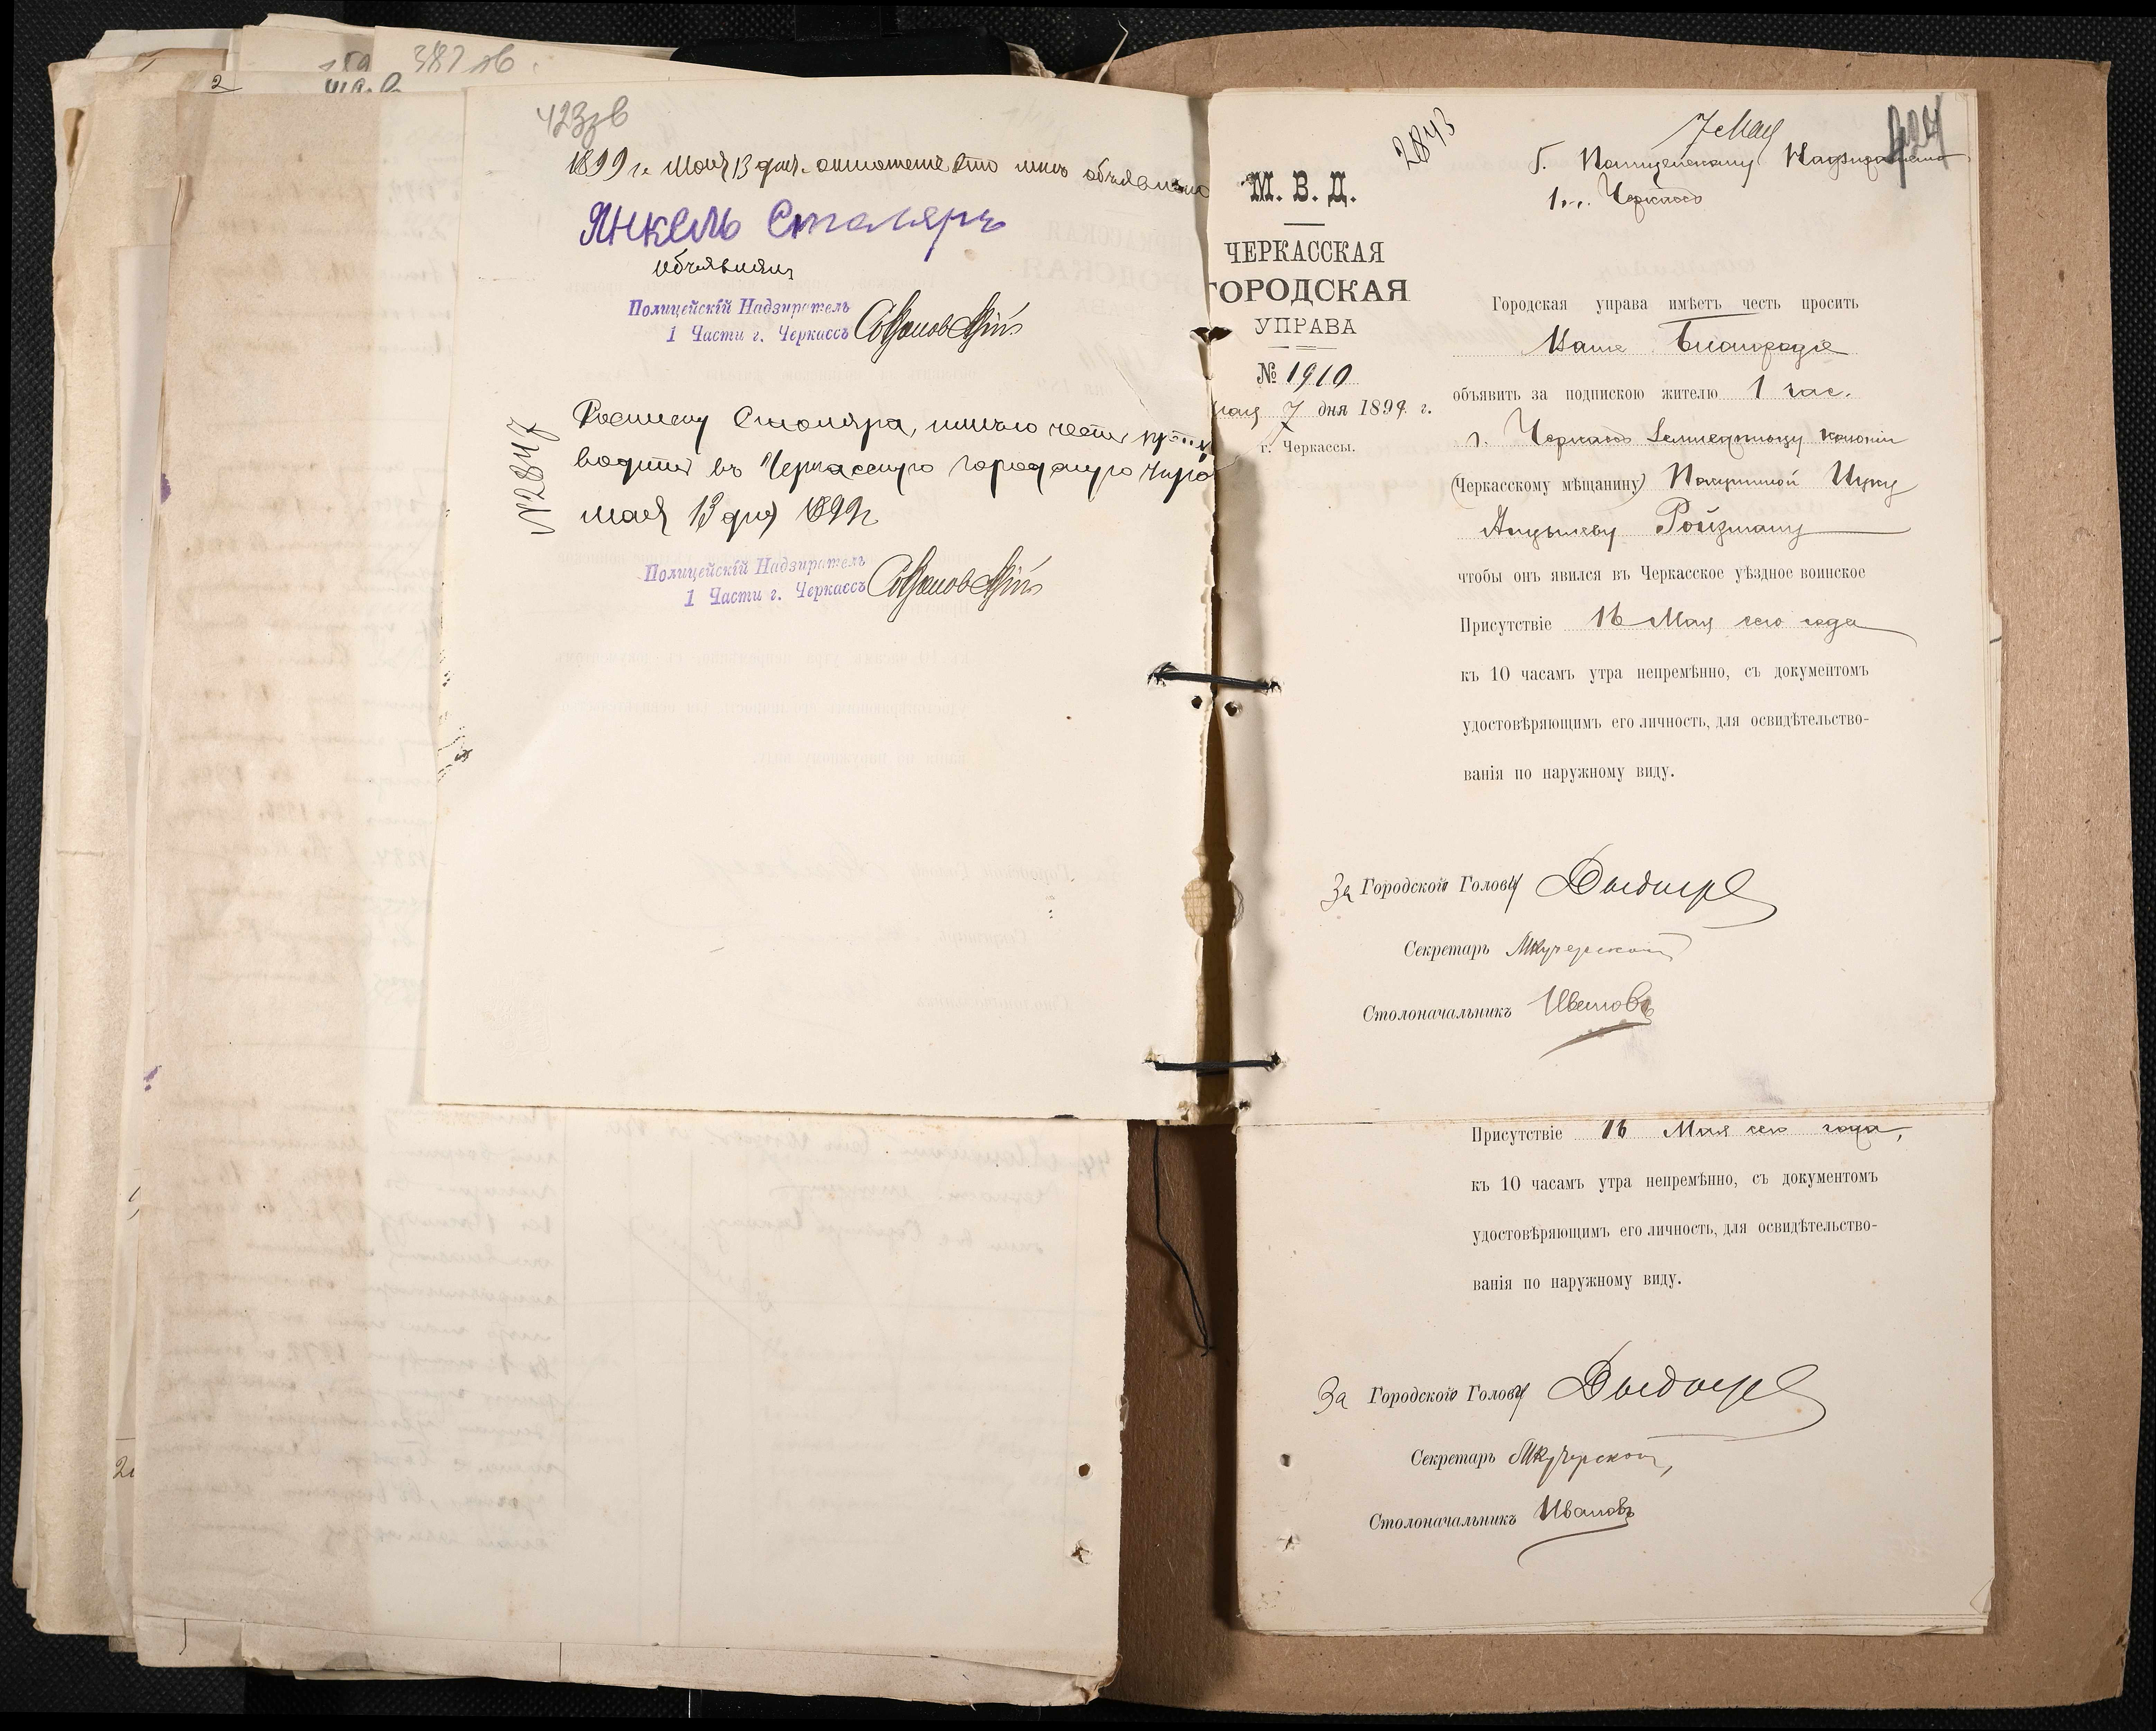 387 об.
2
423 об
1899 г. Мая 13 дня. отношение это мнѣ объявлено
Янкель Столяръ
объявилъ
Полицейскій Надзиратель
1 Части г. Черкассъ
№ 2847
Росписку Столяра, въ Черкасскую городскую Управу
мая 13 дня 1899 г.
Полицейскій Надзиратель
1 Части г. Черкассъ
2843
7 Мая
424
Г. Полицейскому Надзирателю
1 ч. г. Черкассъ
М. В. Д.
ЧЕРКАССКАЯ
ГОРОДСКАЯ
УПРАВА
№ 1910
мая 7 дня 1899 г.
г. Черкассы.
Городская управа имѣетъ честь просить
Ваше Благородіе
объявить за подпискою жителю 1 час.
г. Черкассъ
(Черкасскому мѣщанину) Ицку
Ройзману
чтобы онъ явился въ Черкасское уѣздное воинское
Присутствіе 16 Мая сего года
къ 10 часамъ утра непремѣнно, съ документомъ
удостовѣряющимъ его личность, для освидѣтельство-
ванія по наружному виду.
За Городского Голову
Секретарь
Столоначальникъ Ивановъ
Присутствіе 16 Мая сего года,
къ 10 часамъ утра непремѣнно, съ документомъ
удостовѣряющимъ его личность, для освидѣтельство-
ванія по наружному виду.
За Городского Голову
Секретарь
Столоначальникъ Ивановъ